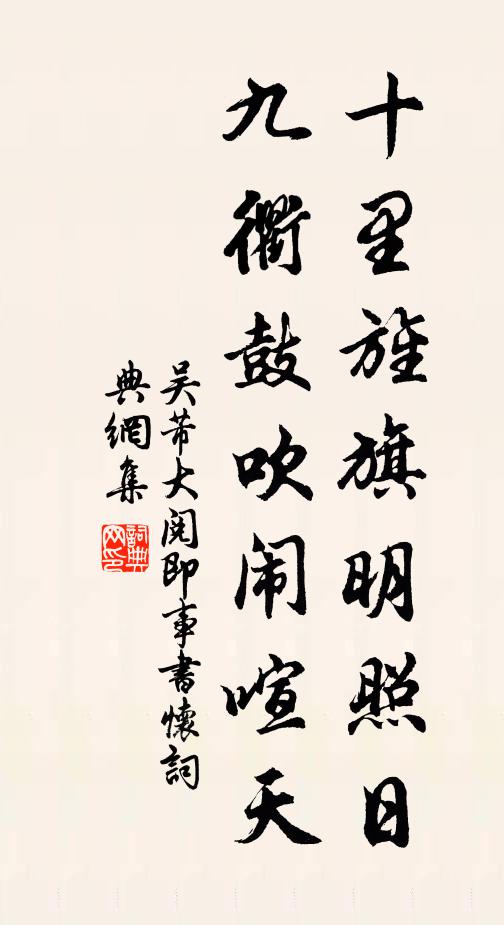 十里旌旗明照日
九衢鼓吹闹喧天
吴芾大阅即事書懷詞
典網集
詞典网印